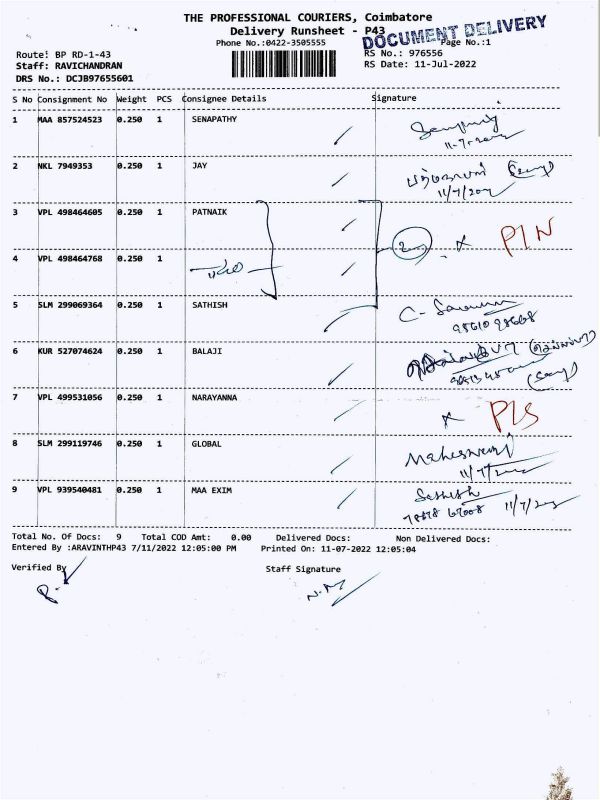 THE PROFESSIONAL COURIERS, Coimbatore
Delivery Runsheet - P43
DOCUMENT DELIVERY
Phone No.:0422-3505555
Page No.:1
Route: BP RD-1-43
RS No.: 976556
Staff: RAVICHANDRAN
RS Date: 11-Jul-2022
DRS No.: DCJB97655601
S No Consignment No Weight PCS Consignee Details Signature
1 MAA 857524523 0.250 1 SENAPATHY
11-7-2022
2 NKL 7949353 0.250 1 JAY
11/7/2022
3 VPL 498464605 0.250 1 PATNAIK
PLN
4 VPL 498464768 0.250 1
5 SLM 299069364 0.250 1 SATHISH
6 KUR 527074624 0.250 1 BALAJI
7 VPL 499531056 0.250 1 NARAYANNA
PLS
8 SLM 299119746 0.250 1 GLOBAL Maheswari
11/7/2022
9 VPL 939540481 0.250 1 MAA EXIM Sathish
11/7/2022
Total No. Of Docs: 9 Total COD Amt: 0.00 Delivered Docs: Non Delivered Docs:
Entered By :ARAVINTHP43 7/11/2022 12:05:00 PM Printed On: 11-07-2022 12:05:04
Verified By Staff Signature